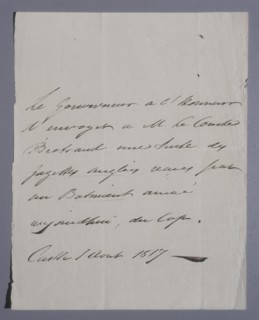 Le Gouverneur a l'honneur
d'envoyer a M. le Comte
Bertrand une suite de
gazettes anglais venus par
un Batiment arrivé
aujourdhui, du Cap.
Castle 1 Aout 1817